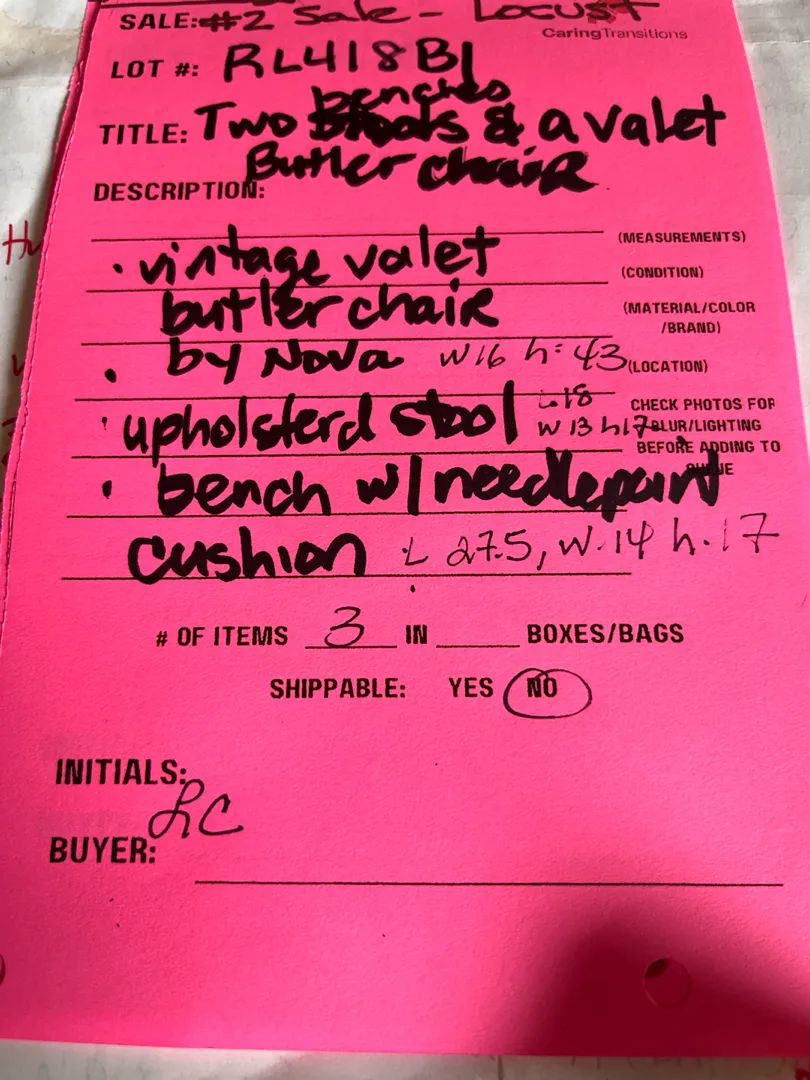 SALE: #2 Sale - Locust
CaringTransitions
LOT #: RL418B1
benches
TITLE: Two stools & a valet
Butler chair
DESCRIPTION:
(MEASUREMENTS)
· vintage valet
(CONDITION)
butler chair
(MATERIAL/COLOR
/BRAND)
· by Nova w16 h: 43
(LOCATION)
· upholsterd stool L18
w 13 h17
CHECK PHOTOS FOR
BLUR/LIGHTING
BEFORE ADDING TO
QUEUE
· bench w/ needlepoint
cushion L 27.5, w. 14 h. 17
# OF ITEMS 3 IN ____ BOXES/BAGS
SHIPPABLE: YES NO
INITIALS:
LC
BUYER: